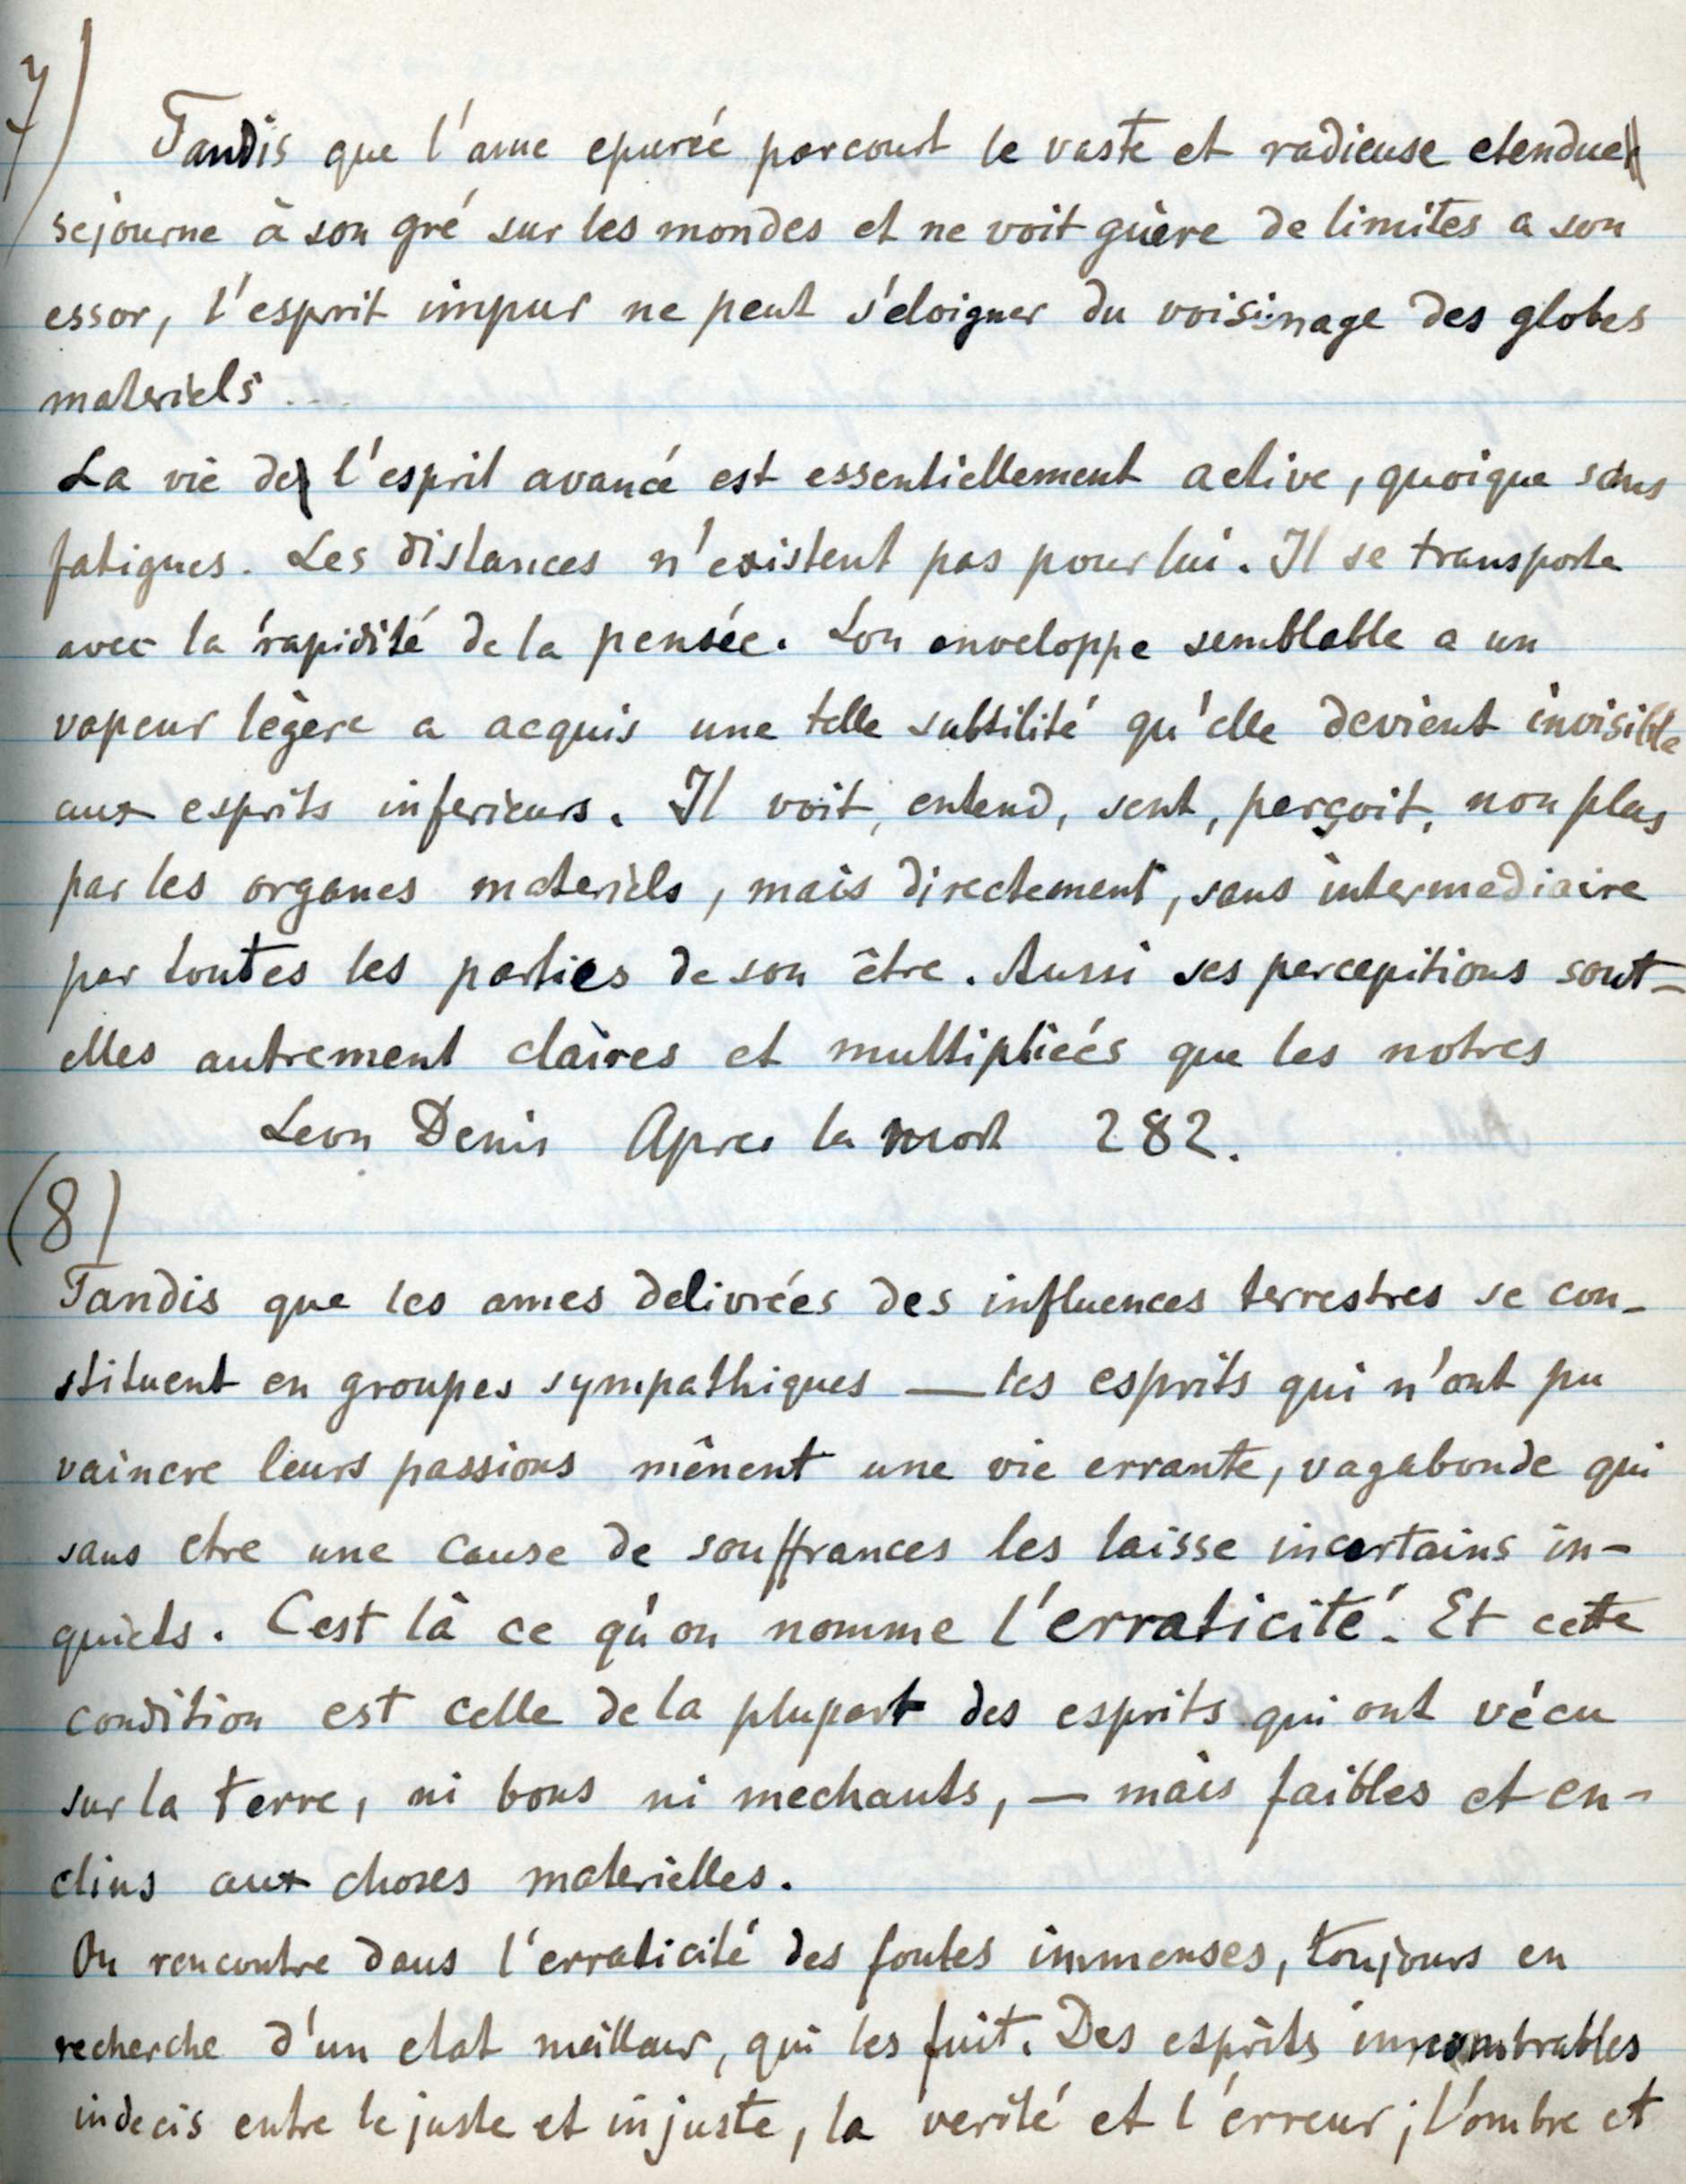 7)
Tandis que l'ame epurée parcourt le vaste et radieuse etendue
sejourne à son gré sur les mondes et ne voit guère de limites a son
essor, l'esprit impur ne peut s'eloigner du voisinage des globes
materiels
La vie de l'esprit avancé est essentiellement active, quoique sans
fatigues. Les distances n'existent pas pour lui. Il se transporte
avec la rapidité de la pensée. Son enveloppe semblable a un
vapeur légere a acquis une telle subtilité qu'elle devient invisible
aux esprits inferieurs. Il voit, entend, sent, perçoit, non plus
par les organes materiels, mais directement, sans intermediaire
par toutes les parties de son être. Aussi ses percepitions sont-
elles autrement claires et multipliées que les notres
Leon Denis Apres la mort 282.
(8)
Tandis que les ames delivrées des influences terrestres se con-
stituent en groupes sympathiques — les esprits qui n'ont pu
vaincre leurs passions mênent une vie errante, vagabonde qui
sans etre une cause de souffrances les laisse incertains in-
quiets. C'est là ce qu'on nomme l'erraticité. Et cette
condition est celle de la plupart des esprits qui ont vécu
sur la terre, ni bons ni mechants, — mais faibles et en-
clins aux choses materielles.
On rencontre dans l'erraticité des foules immenses, toujours en
recherche d'un etat meilleur, qui les fuit. Des esprits innombrables
indecis entre le juste et injuste, la verité et l'erreur; l'ombre et